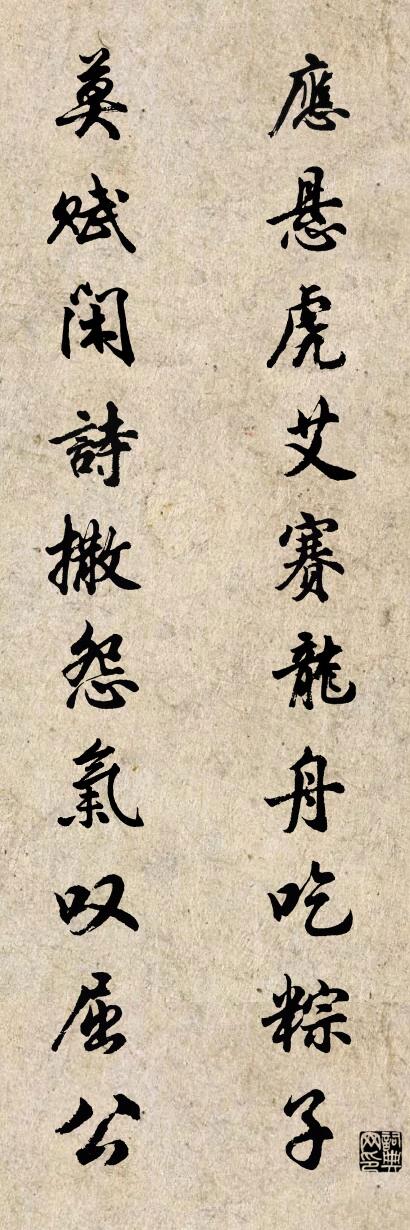 應悬虎艾賽龍舟吃粽子
莫賦閑詩撒怨氣叹屈公
詞典网印